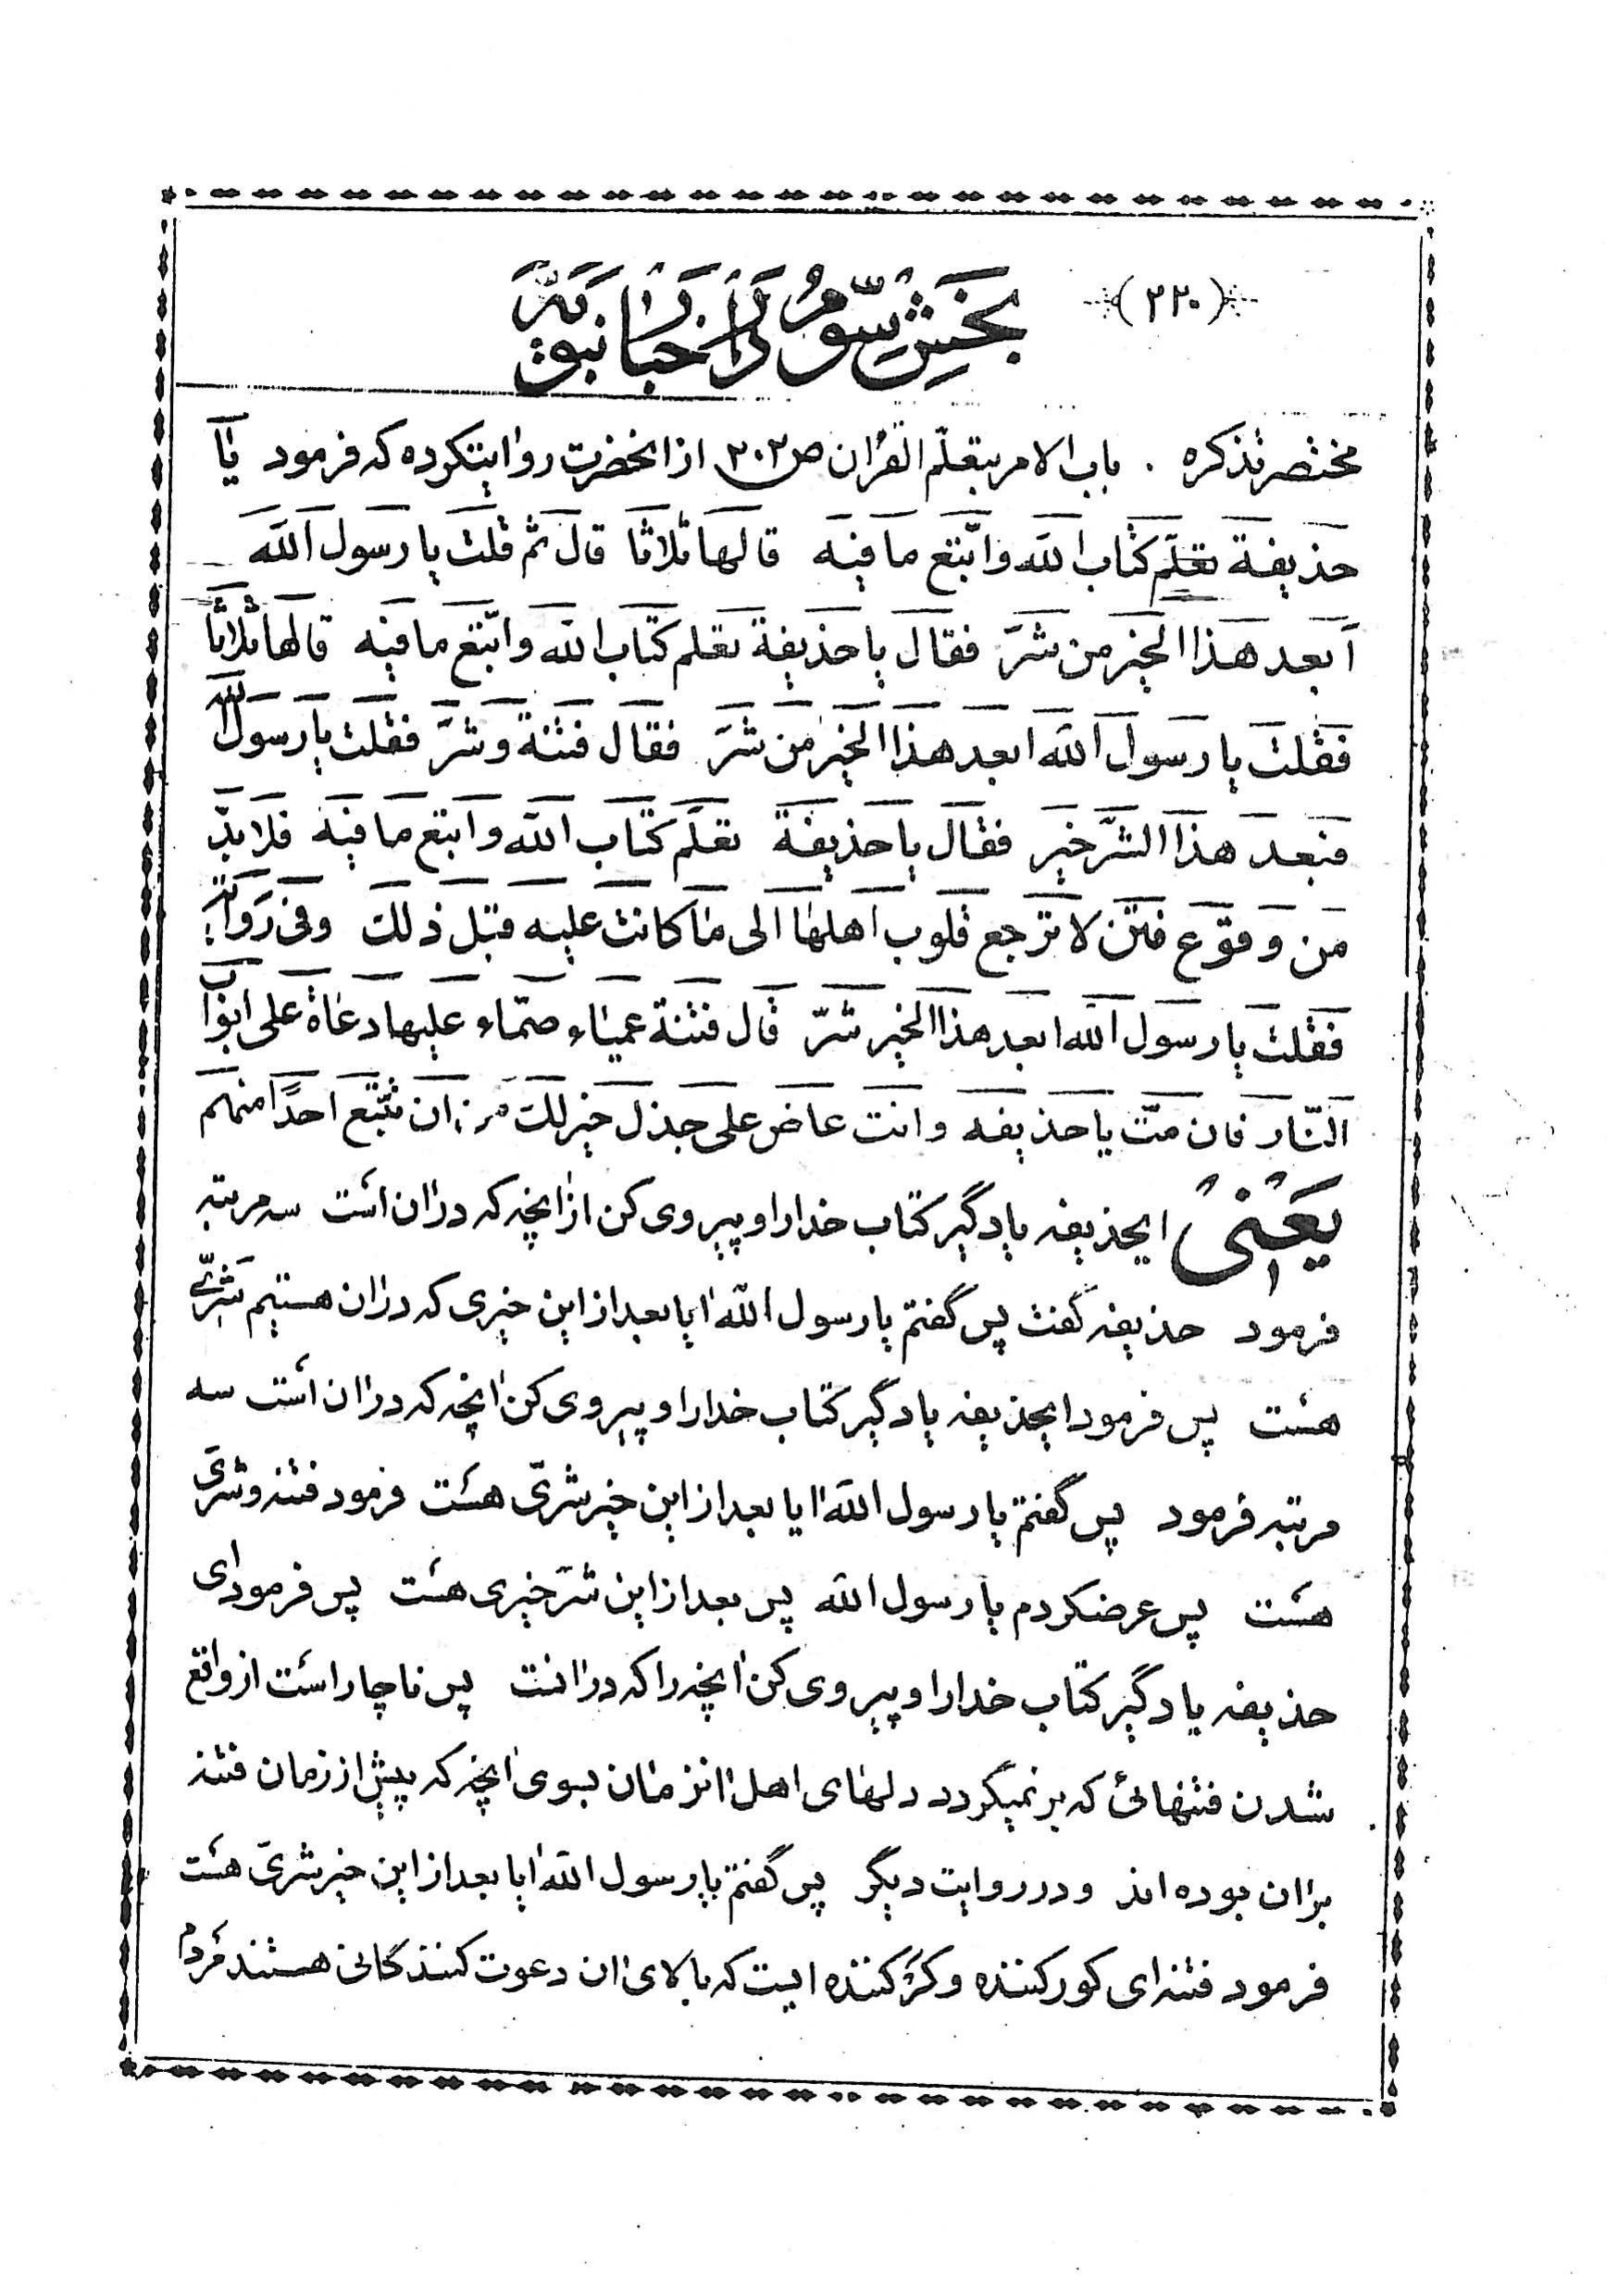 (۲۲۰)
بخش سوم در اخبار نبویه
مختصر تذکره . باب الامر بتعلّم القرآن ص۲۰۲ از انحضرت روایتکرده که فرمود یا
حذیفة تعلّم کتاب الله واتّبع ما فیه قالها ثلاثا قال ثم قلت یا رسول الله
أبعد هذا الخیر من شرّ فقال یا حذیفة تعلم کتاب الله واتّبع ما فیه قالها ثلاثا
فقلت یا رسول الله ابعد هذا الخیر من شرّ فقال فتنة وشرّ فقلت یا رسول الله
فبعد هذا الشّر خیر فقال یا حذیفة تعلّم کتاب الله واتبع ما فیه فلا بدّ
من وقوع فتن لا ترجع قلوب اهلها الی ما کانت علیه قبل ذلک وفی روایة
فقلت یا رسول الله ابعد هذا الخیر شرّ قال فتنة عمیاء صمّاء علیها دعاة علی ابواب
النّار فان متّ یا حذیفه وانت عاض علی جذل خیر لک من ان تتّبع احدًا منهم
یعنی ایحذیفه یاد گیر کتاب خدا را و پیروی کن از انچه که در ان است سه مرتبه
فرمود حذیفه گفت پس گفتم یا رسول الله ایا بعد از این خیری که در ان هستیم شرّی
هست پس فرمود ایحذیفه یاد گیر کتاب خدا را و پیروی کن انچه که در ان است سه
مرتبه فرمود پس گفتم یا رسول الله ایا بعد از این خیر شرّی هست فرمود فتنه و شرّی
هست پس عرضکردم یا رسول الله پس بعد از این شرّ خیری هست پس فرمود ای
حذیفه یاد گیر کتاب خدا را و پیروی کن انچه را که در انست پس ناچار است از واقع
شدن فتنهائی که بر نمیگردد دلهای اهل انزمان بسوی انچه که پیش از زمان فتنه
بران بوده اند و در روایت دیگر پس گفتم یا رسول الله ایا بعد از این خیر شرّی هست
فرمود فتنه ای کور کننده و کرّ کننده ایست که بالای ان دعوت کنندگانی هستند مردم